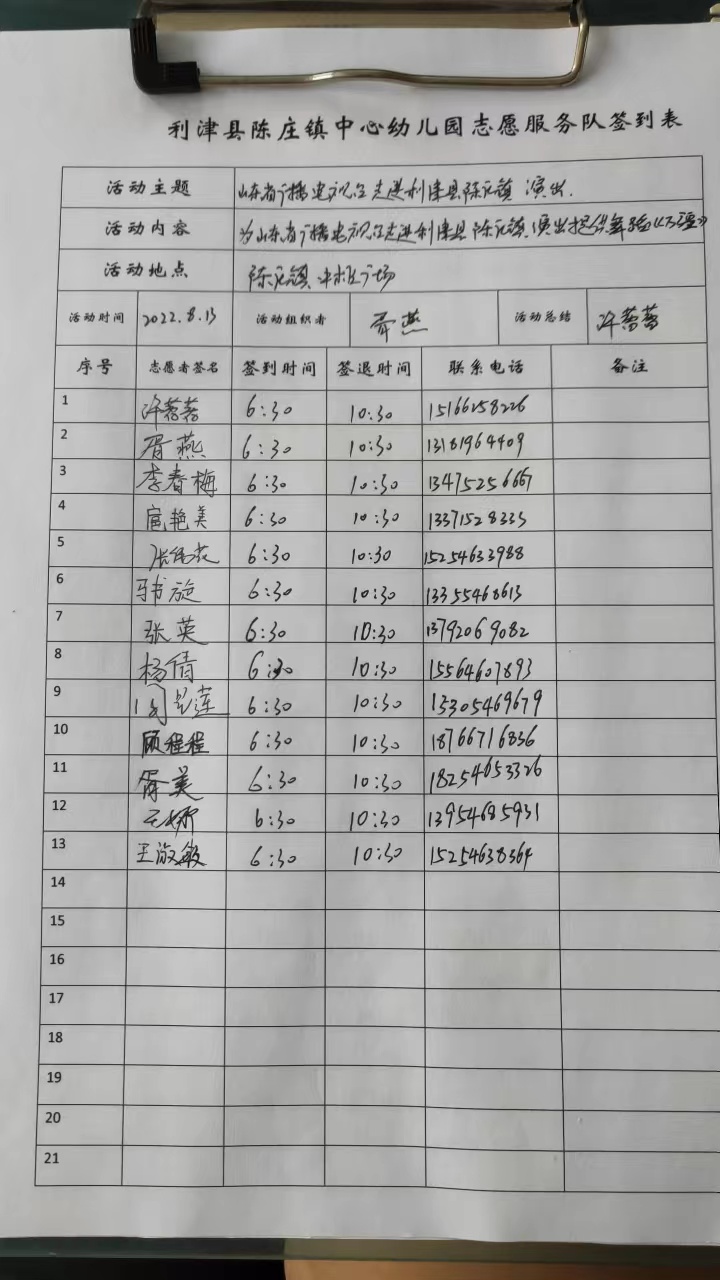 利津县陈庄镇中心幼儿园志愿服务队签到表
活动主题 山东省广播电视台走进利津县陈庄镇 演出.
活动内容 为山东省广播电视台走进利津县陈庄镇演出提供舞蹈《万疆》
活动地点 陈庄镇 广场
活动时间 2022.8.13 活动组织者 胥燕 活动总结 许蓉蓉
序号 志愿者签名 签到时间 签退时间 联系电话 备注
1 许蓉蓉 6:30 10:30 15166258226
2 胥燕 6:30 10:30 13181964409
3 李春梅 6:30 10:30 13475256667
4 扈艳美 6:30 10:30 13371528333
5 6:30 10:30 15254633988
6 旋 6:30 10:30 13355468613
7 张英 6:30 10:30 13792069082
8 杨倩 6:30 10:30 15564607893
9 6:30 10:30 15305469679
10 顾程程 6:30 10:30 18766716836
11 胥美 6:30 10:30 18254653326
12 王娇 6:30 10:30 13954685931
13 王淑敏 6:30 10:30 15254638364
14
15
16
17
18
19
20
21